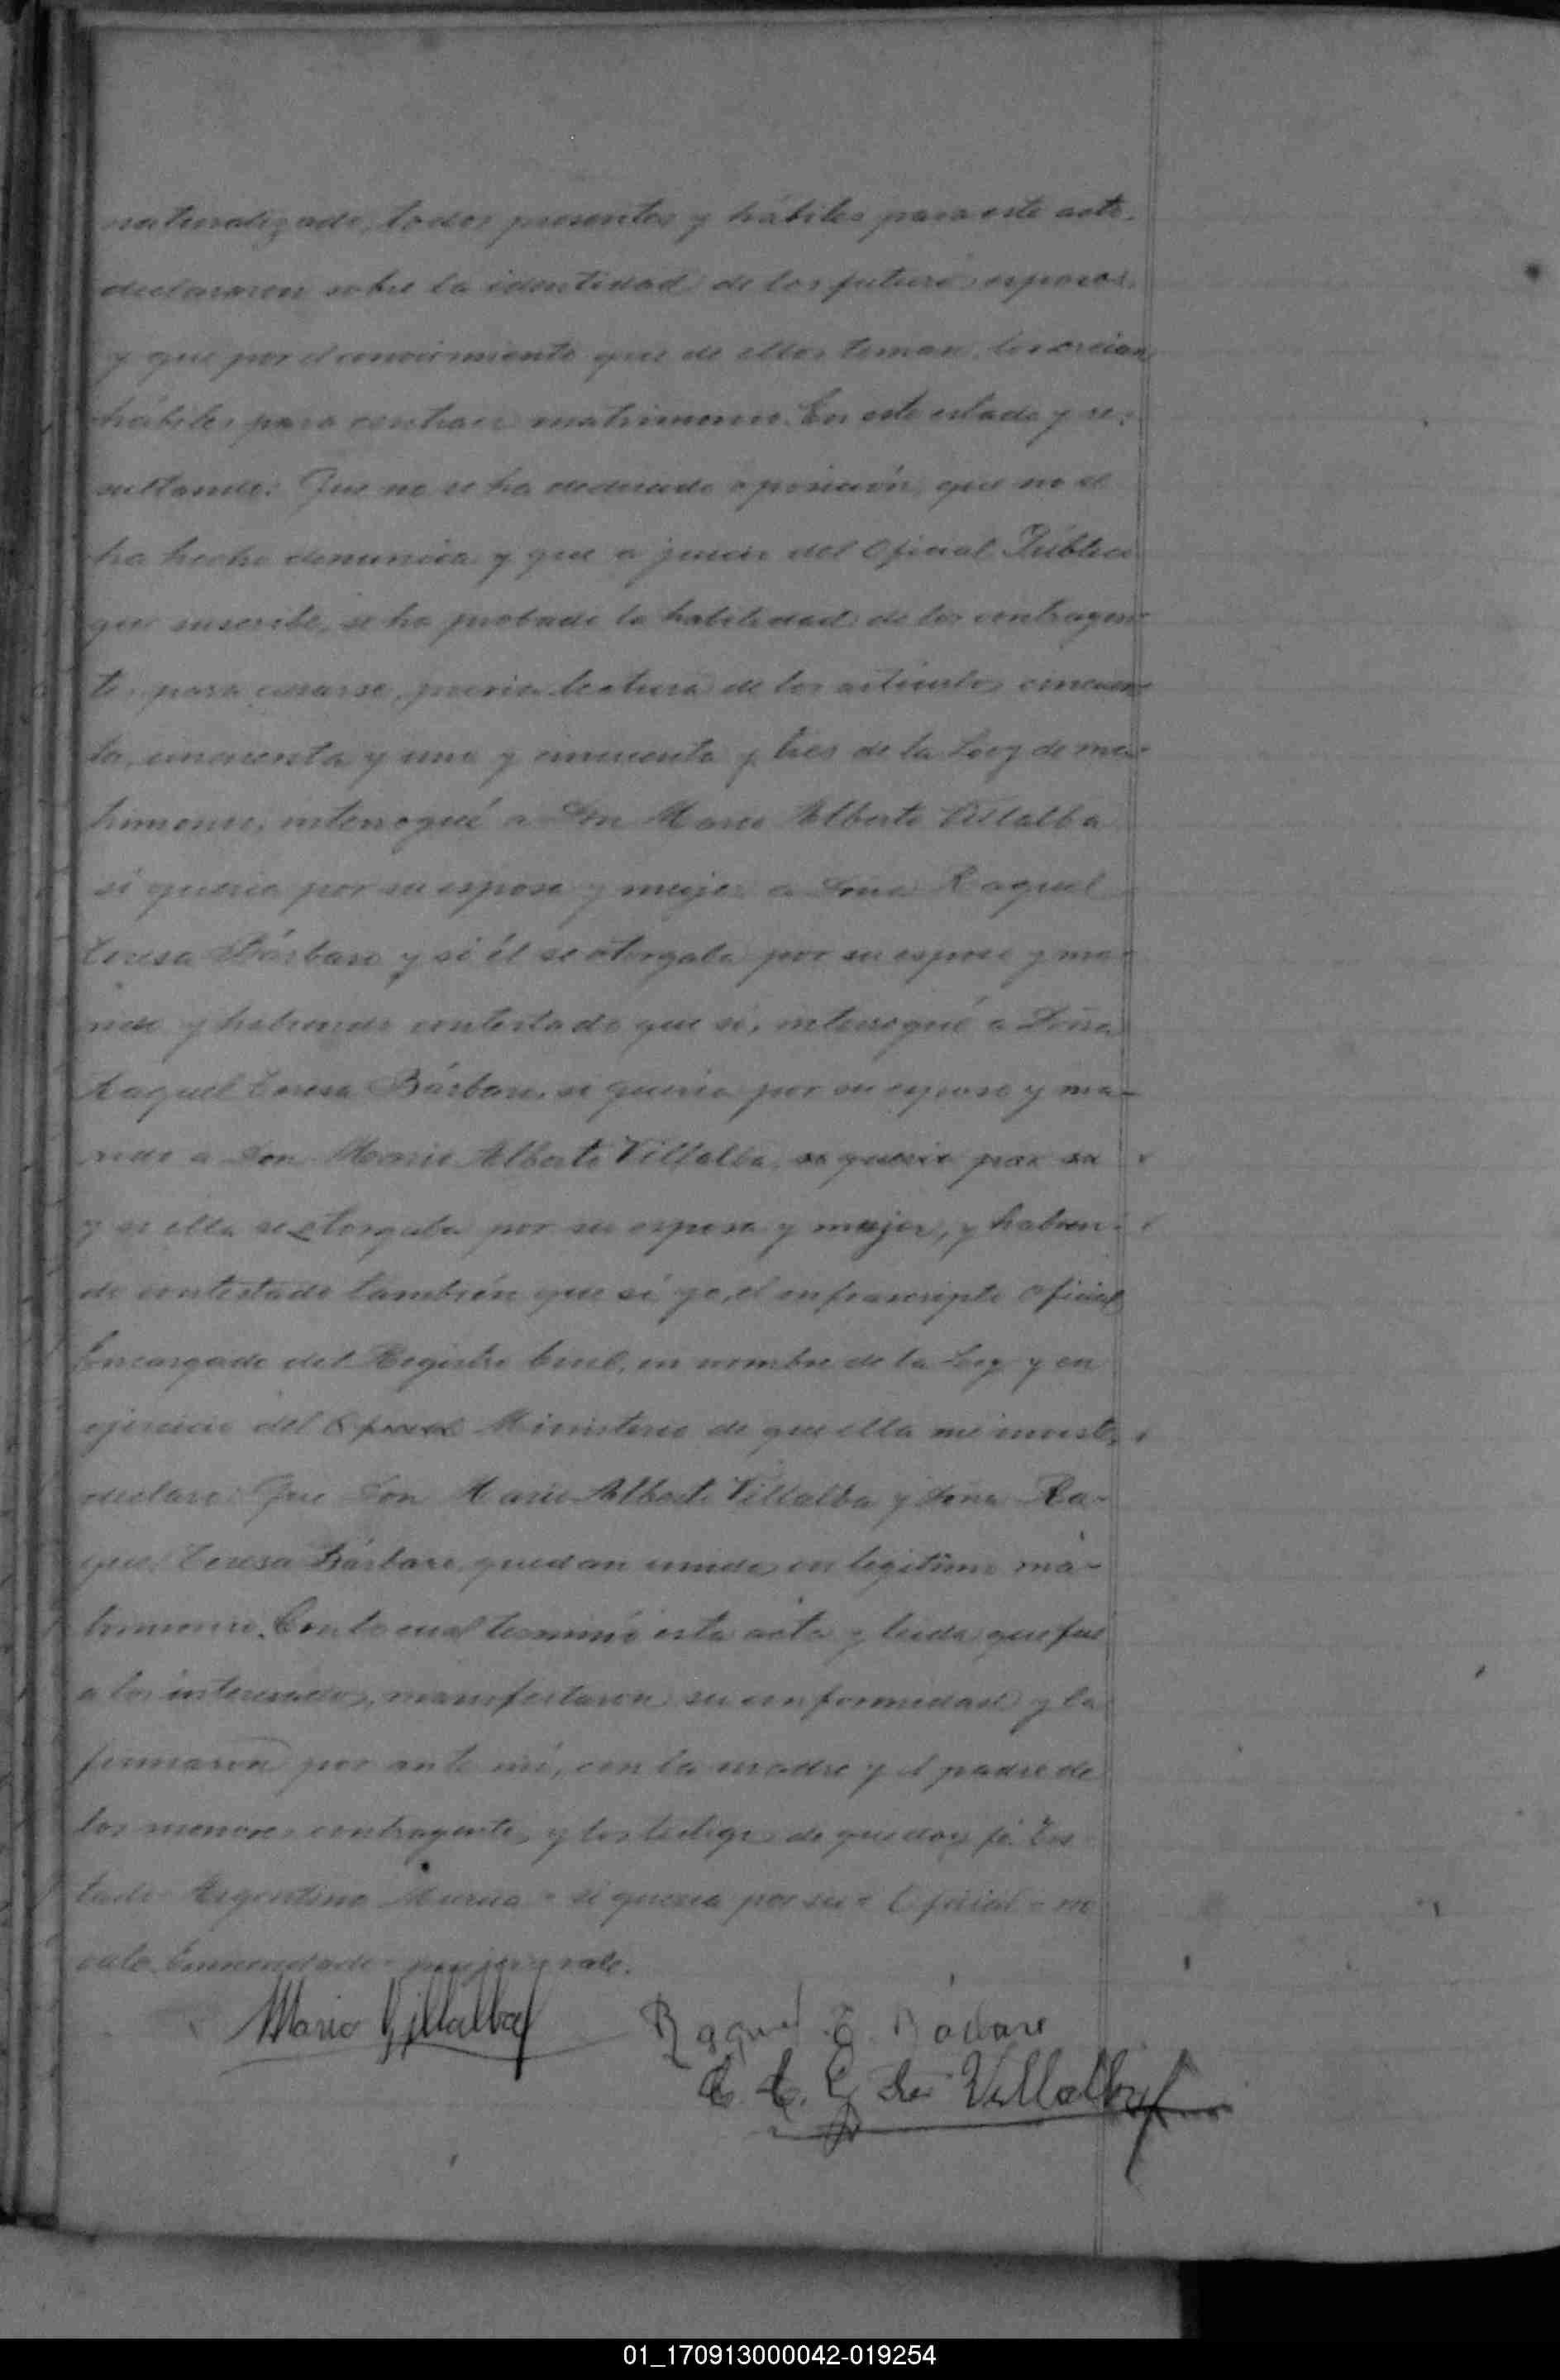 naturalizado, todos presentes y hábiles para este acto,
declararon sobre la identidad de los futuros esposos,
y que por el conocimiento que de ellos tenian, los creían
hábiles para contraer matrimonio. En este estado y re-
sultando: Que no se ha deducido oposición, que no se
ha hecho denuncia y que a juicio del Oficial Público
que suscribe, se ha probado la habilidad de los contrayen-
tes para casarse, previa lectura de los artículos cincuen-
ta, cincuenta y uno y cincuenta y tres de la Ley de ma-
trimonio, interrogué a Don Mario Alberto Villalba
si queria por su esposa y mujer a Doña Raquel
Teresa Bárbaro y si él se otorgaba por su esposo y ma-
rido y habiendo contestado que si, interrogué a Doña
Raquel Teresa Bárbaro, si queria por su esposo y ma-
rido a Don Mario Alberto Villalba, si queria por su
y si ella se otorgaba por su esposa y mujer, y habien-
do contestado también que sí yo, el infrascripto Oficial
Encargado del Registro Civil, en nombre de la Ley y en
ejercicio del Oficial Ministerio de que ella me inviste,
declaro: Que Don Mario Alberto Villalba y Doña Ra-
quel Teresa Bárbaro, quedan unidos en legitimo ma-
trimonio. Con lo cual terminó esta acta y leida que fue
a los interesados, manifestaron su conformidad y la
firmaron por ante mí, con la madre y el padre de
los menores contrayentes y los testigos de que doy fé. Tes-
tado Argentino = si queria por su = Oficial = no
vale. Enmendado = mujer = vale.
Mario Villalba
Raquel T. Bárbaro
de Villalba
01_170913000042-019254